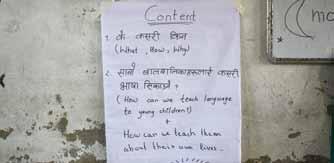 Content
1. के कसरी किन
(What, How, Why)
2. साना बालबालिकाहरूलाई कसरी
भाषा सिकाउने ?
(How can we teach language
to young children?)
+
How can we teach them
about their own lives.
mo